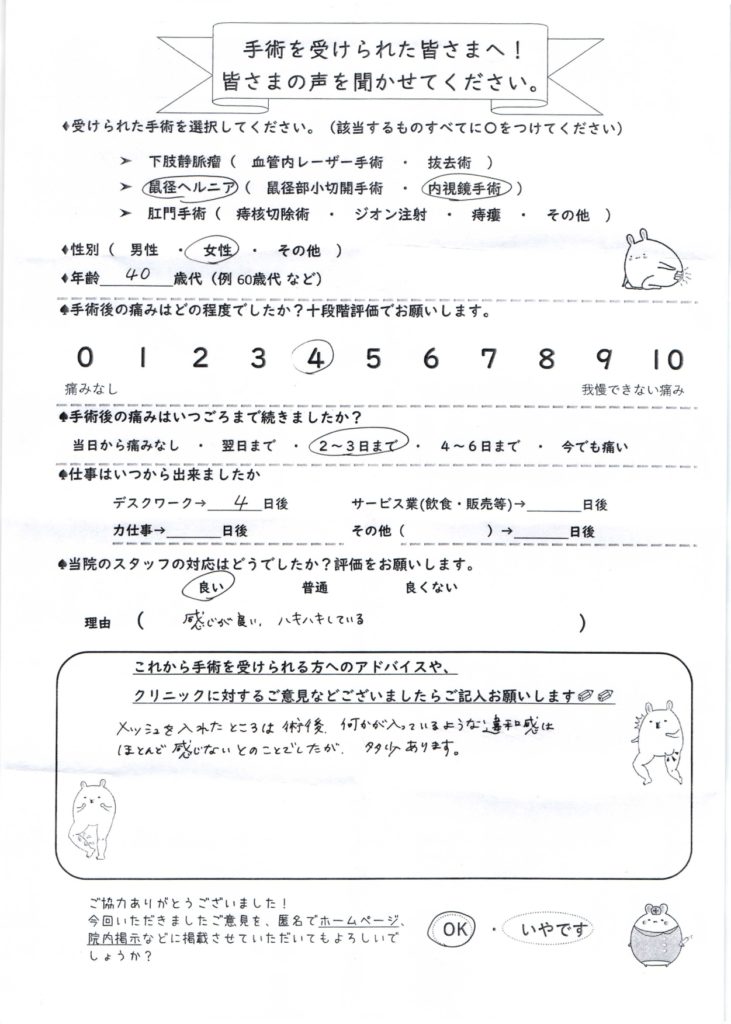 手術を受けられた皆さまへ！
皆さまの声を聞かせてください。
♦受けられた手術を選択してください。（該当するものすべてに〇をつけてください）
➤ 下肢静脈瘤（ 血管内レーザー手術 ・ 抜去術 ）
➤ 鼠径ヘルニア（ 鼠径部小切開手術 ・ 内視鏡手術 ）
➤ 肛門手術（ 痔核切除術 ・ ジオン注射 ・ 痔瘻 ・ その他 ）
♦性別（ 男性 ・ 女性 ・ その他 ）
♦年齢 40 歳代（例 60歳代 など）
♠手術後の痛みはどの程度でしたか？十段階評価でお願いします。
0 1 2 3 4 5 6 7 8 9 10
痛みなし 我慢できない痛み
♠手術後の痛みはいつごろまで続きましたか？
当日から痛みなし ・ 翌日まで ・ 2～3日まで ・ 4～6日まで ・ 今でも痛い
♠仕事はいつから出来ましたか
デスクワーク→ 4 日後 サービス業(飲食・販売等)→ 日後
力仕事→ 日後 その他（ ）→ 日後
♠当院のスタッフの対応はどうでしたか？評価をお願いします。
良い 普通 良くない
理由 ( 感じが良い、ハキハキしている )
これから手術を受けられる方へのアドバイスや、
クリニックに対するご意見などございましたらご記入お願いします
メッシュを入れたところは術後、何かが入っているような違和感は
ほとんど感じないとのことでしたが、多少あります。
ご協力ありがとうございました！
今回いただきましたご意見を、匿名でホームページ、
院内掲示などに掲載させていただいてもよろしいで
しょうか？
OK ・ いやです